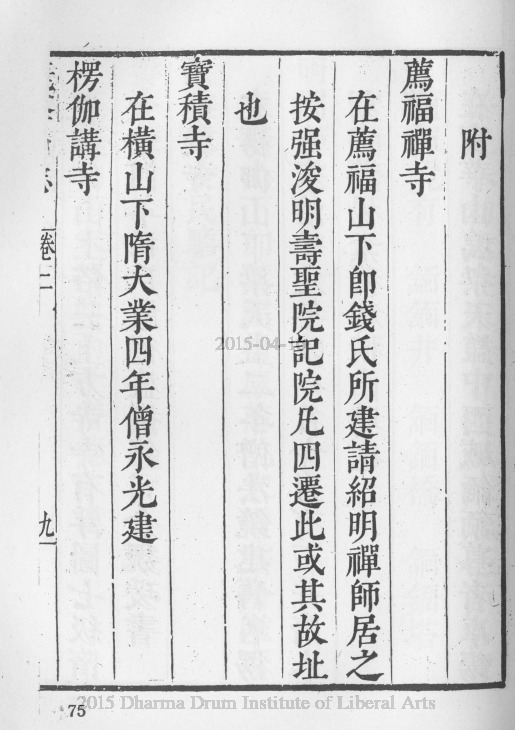 附
薦福禪寺
在薦福山下卽錢氏所建請紹明禪師居之
按强浚明壽聖院記院凡四遷此或其故址
也
寶積寺
在橫山下隋大業四年僧永光建
楞伽講寺
志 卷二 九
2015-04-1
75
2015 Dharma Drum Institute of Liberal Arts